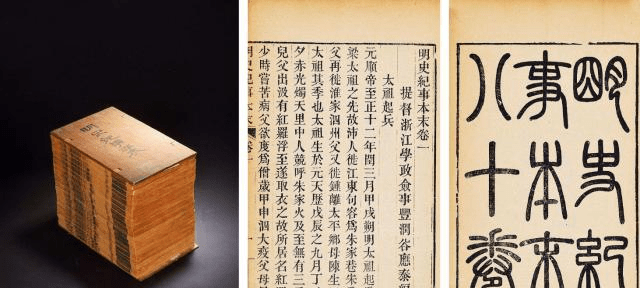 明史紀事本末卷一
提督浙江學政僉事豐潤谷應泰編
太祖起兵
元順帝至正十二年閏三月甲戌朔明太祖起
梁太祖之先故沛人徙江東句容爲朱家巷宋
父再徙淮家泗州父又徙鍾離太平鄉母陳生
太祖其季也太祖生於元天歷戊辰之九月丁
夕赤光燭天里中人競呼朱家火及至無有三
兒父出汲有紅羅浮至遂取衣之故所居名紅
少時嘗苦病父欲度爲僧歲甲申泗大疫父母
明史紀
事本末
八十卷